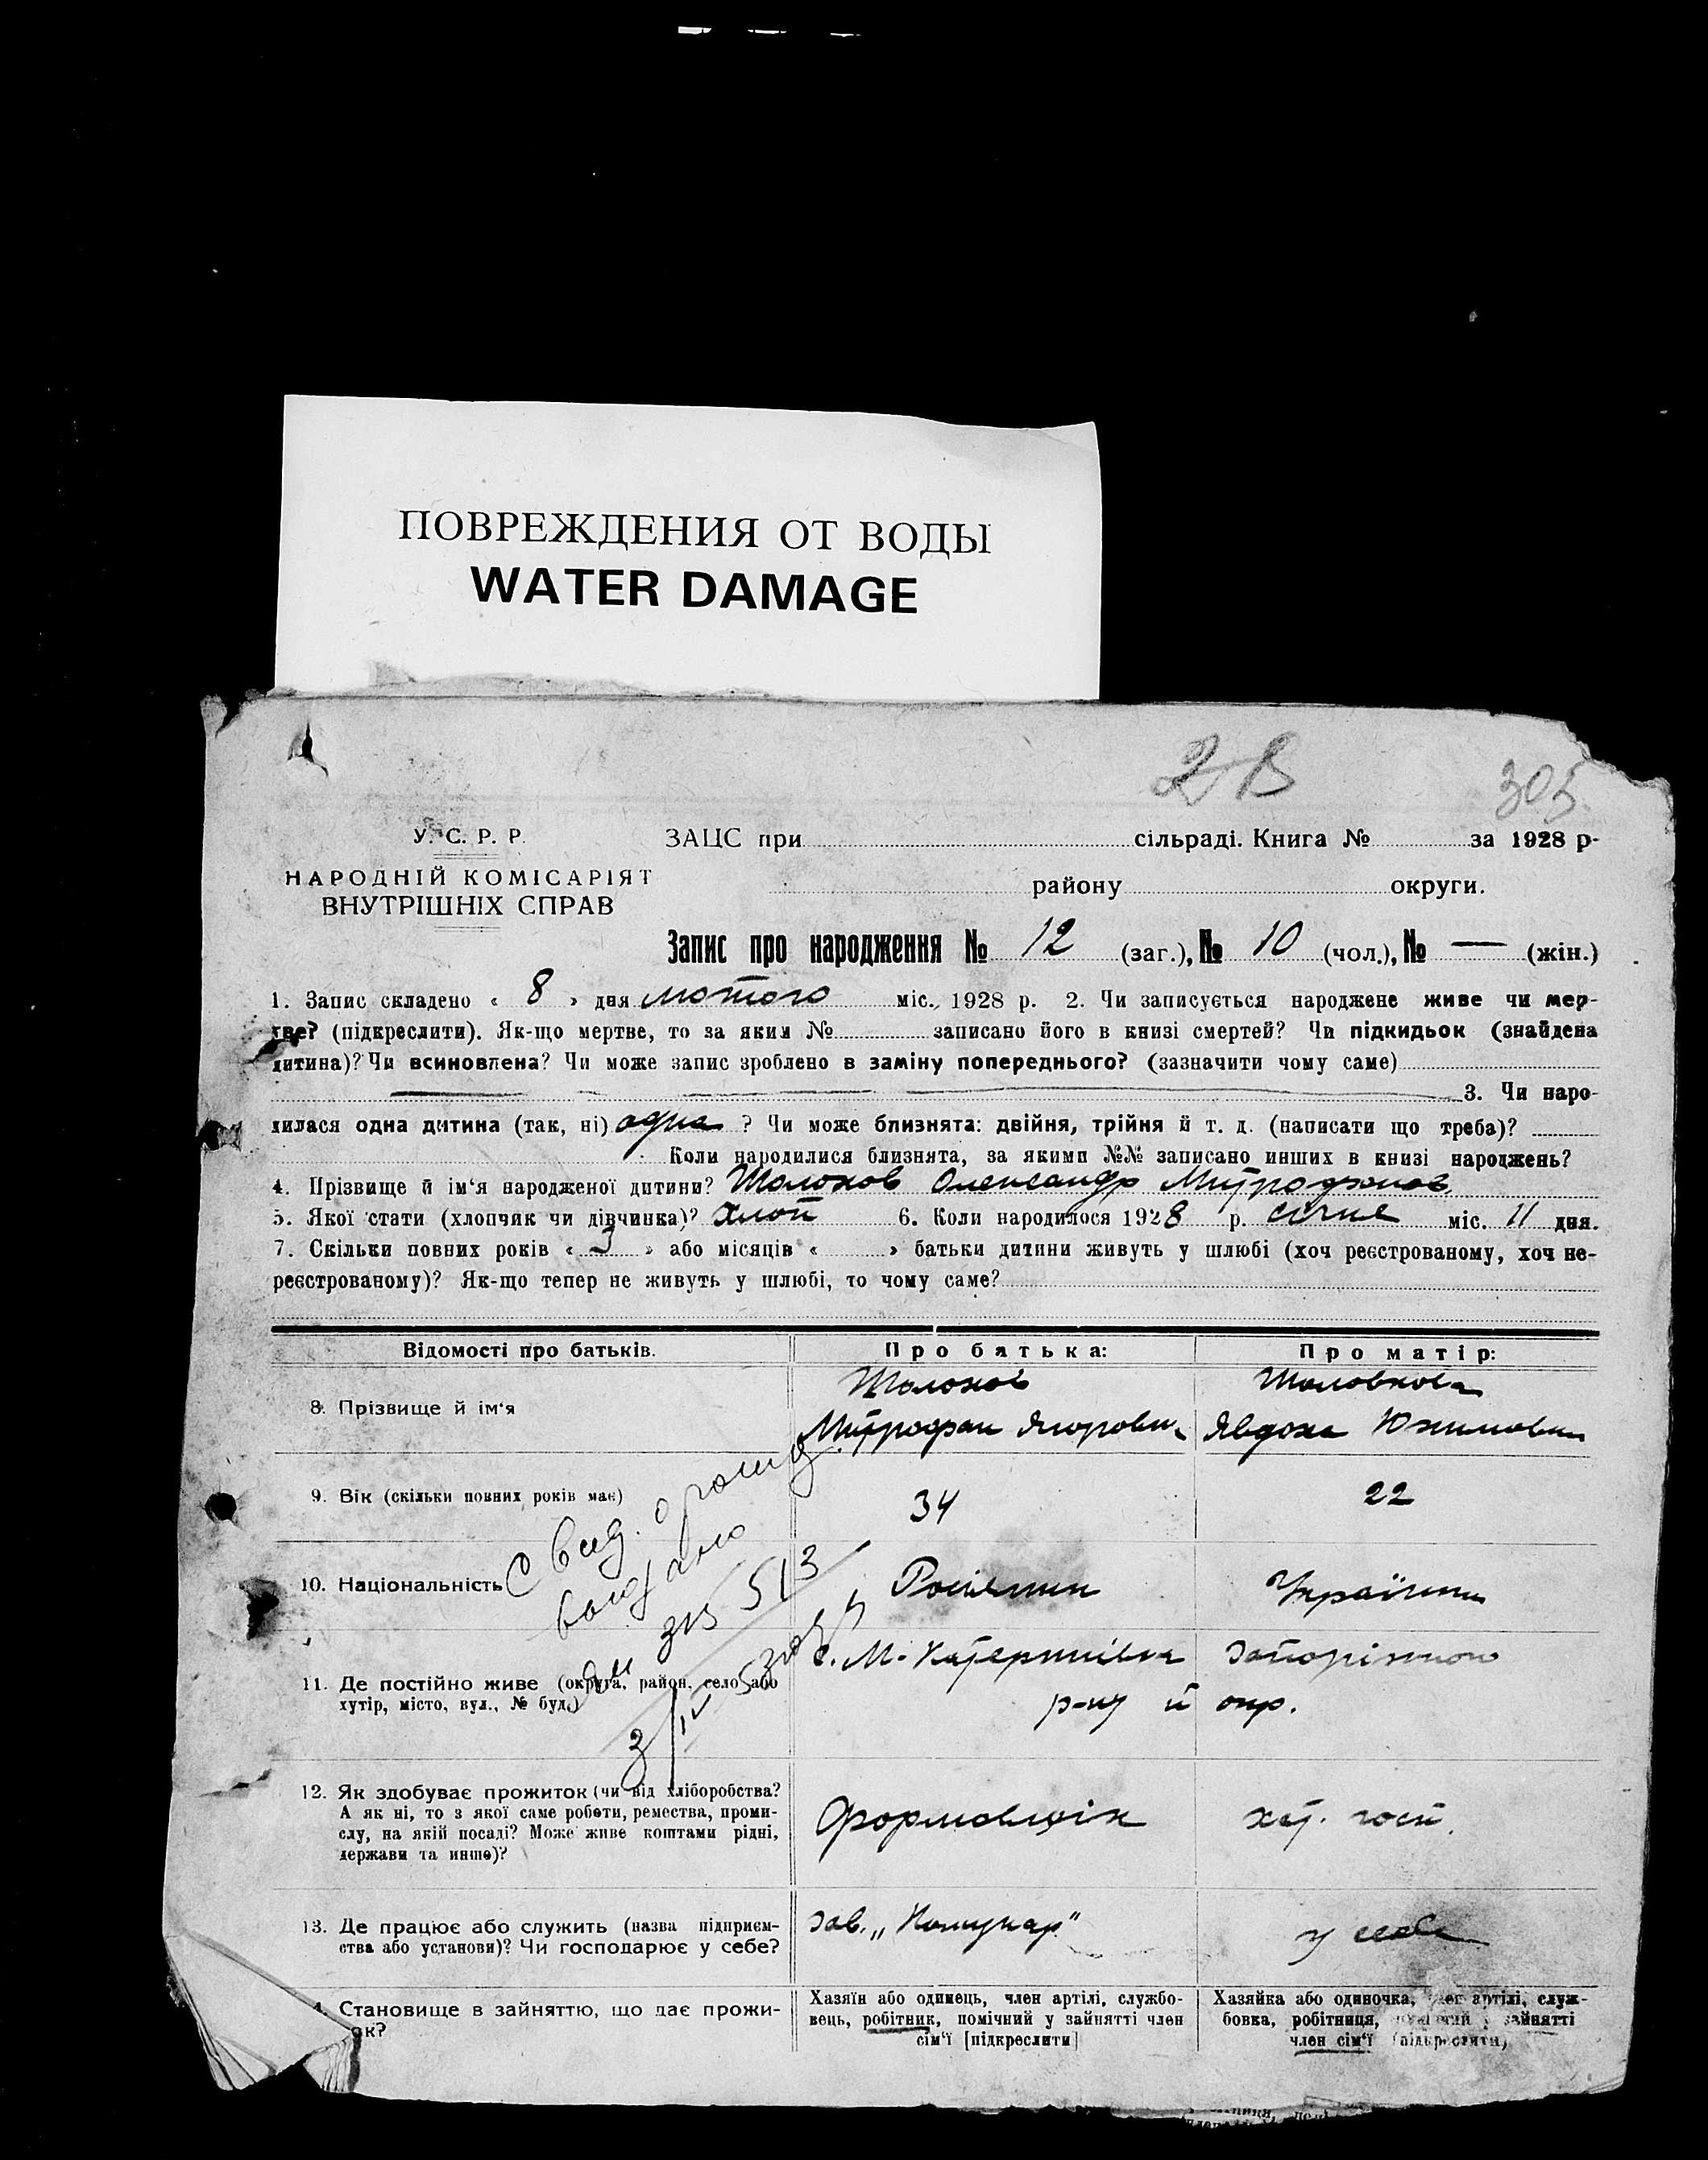 ПОВРЕЖДЕНИЯ ОТ ВОДЫ
WATER DAMAGE
305
У. С. Р. Р.
НАРОДНІЙ КОМІСАРІЯТ
ВНУТРІШНІХ СПРАВ
ЗАЦС при сільраді. Книга № за 1928 р-
району округи.
Запис про народження № 12 (заг.), № 10 (чол.), № — (жін.)
1. Запис складено « 8 » дня лютого міс., 1928 р. 2. Чи записується народжене живе чи мер-
тве? (підкреслити). Як-що мертве, то за яким № записано його в книзі смертей? Чи підкидьок (знайдена
дитина)? Чи всиновлена? Чи може запис зроблено в заміну попереднього? (зазначити чому саме)
3. Чи наро-
дилася одна дитина (так, ні) одна ? Чи може близнята: двійня, трійня й т. д. (написати що треба)?
Коли народилися близнята, за якими №№ записано инших в книзі народжень?
4. Прізвище й ім‘я народженої дитини? Олександр
5. Якої стати (хлопчик чи дівчинка)? хлоп 6. Коли народилося 1928 р. січня міс. 11 дня.
7. Скільки повних років « 3 » або місяців « » батьки дитини живуть у шлюбі (хоч реєстрованому, хоч не-
реєстрованому)? Як-що тепер не живуть у шлюбі, то чому саме?
Відомості про батьків. Про батька: Про матір:
8. Прізвище й ім‘я
Митрофан Явдоха
9. Вік (скільки повних років має) 34 22
10. Національність Росіянин Українка
513
11. Де постійно живе (округа, район, село або
хутір, місто, вул., № буд.)
с. М-Катеринівка Запорізького
р-ну й окр.
12. Як здобуває прожиток (чи від хліборобства?
А як ні, то з якої саме роботи, ремества, проми-
слу, на якій посаді? Може живе коштами рідні,
держави та инше)?
Формовщік хат. госп.
13. Де працює або служить (назва підприєм-
ства або установи)? Чи господарює у себе?
Зав. „Комунар" у себе
Становище в зайняттю, що дає прожи-
ок?
Хазяїн або одинець, член артілі, службо-
вець, робітник, помічний у зайнятті член
сім‘ї [підкреслити]
Хазяйка або одиночка, артілі, служ-
бовка, робітниця, у зайнятті
член сім‘ї (підкреслити)